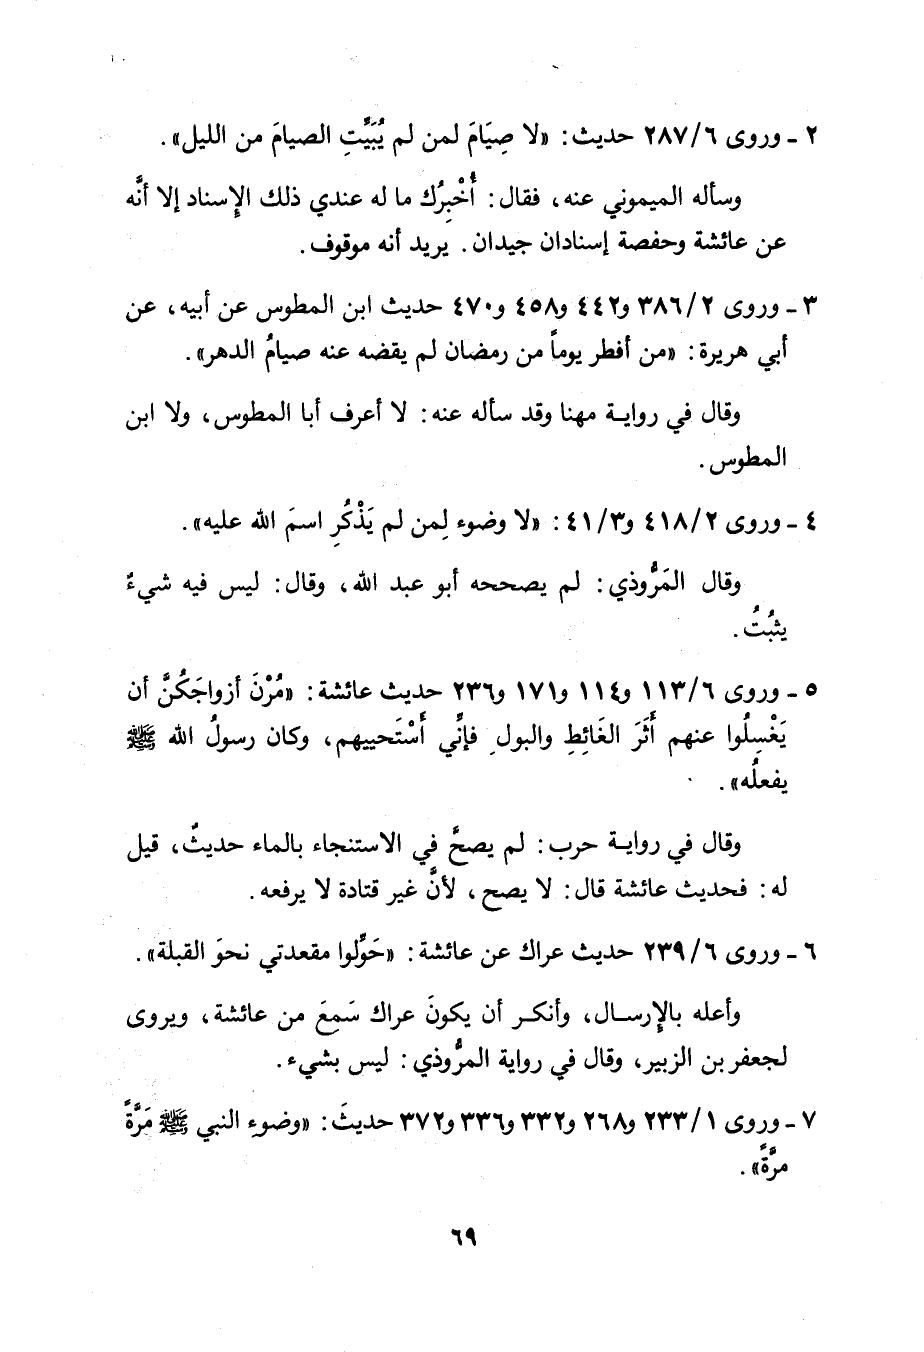 ٢ ـ وروى ٢٨٧/٦ حديث: «لا صِيَامَ لمن لم يُبَيِّتِ الصيامَ من الليل».
وسأله الميموني عنه، فقال: أُخْبِرُك ما له عندي ذلك الإِسناد إلا أنَّه
عن عائشة وحفصة إسنادان جيدان. يريد أنه موقوف.
٣ ـ وروى ٣٨٦/٢ و٤٤٢ و٤٥٨ و٤٧٠ حديث ابن المطوس عن أبيه، عن
أبي هريرة: «من أفطر يوماً من رمضان لم يقضه عنه صيامُ الدهر».
وقال في رواية مهنا وقد سأله عنه: لا أعرف أبا المطوس، ولا ابن
المطوس.
٤ ـ وروى ٤١٨/٢ و٤١/٣: «لا وضوء لِمن لم يَذْكُرِ اسمَ الله عليه».
وقال المَرُّوذي: لم يصححه أبو عبد الله، وقال: ليس فيه شيءٌ
يثبُتُ.
٥ ـ وروى ١١٣/٦ و١١٤ و١٧١ و٢٣٦ حديث عائشة: «مُرْنَ أزواجَكُنَّ أن
يَغْسِلُوا عنهم أَثَرَ الغَائِطِ والبولِ فإنِّي أَسْتَحييهم، وكان رسولُ الله ﷺ
يفعلُه».
وقال في رواية حرب: لم يصحَّ في الاستنجاء بالماء حديثٌ، قيل
له: فحديث عائشة قال: لا يصح، لأنَّ غير قتادة لا يرفعه.
٦ ـ وروى ٢٣٩/٦ حديث عراك عن عائشة: «حَوِّلوا مقعدتي نحوَ القبلة».
وأعله بالإِرسال، وأنكر أن يكونَ عراك سَمِعَ من عائشة، ويروى
لجعفر بن الزبير، وقال في رواية المرُّوذي: ليس بشيء.
٧ ـ وروى ٢٣٣/١ و٢٦٨ و٣٣٢ و٣٣٦ و٣٧٢ حديثَ: «وضوءِ النبي ﷺ مَرَّةً
مرَّةً».
٦٩